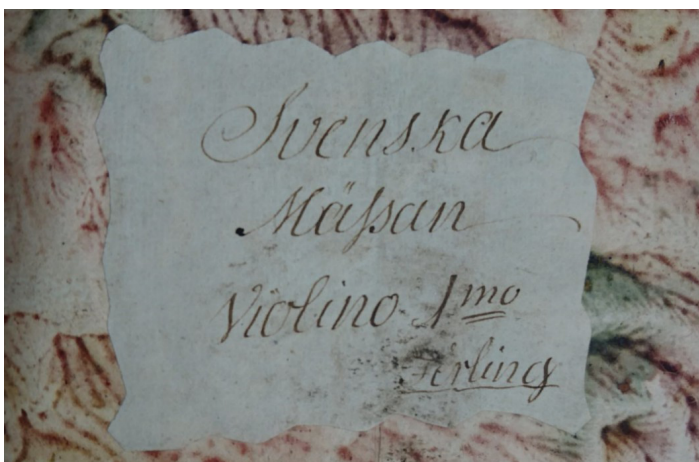 Svenska
Mäſsan
Violino 1mo
Ferling